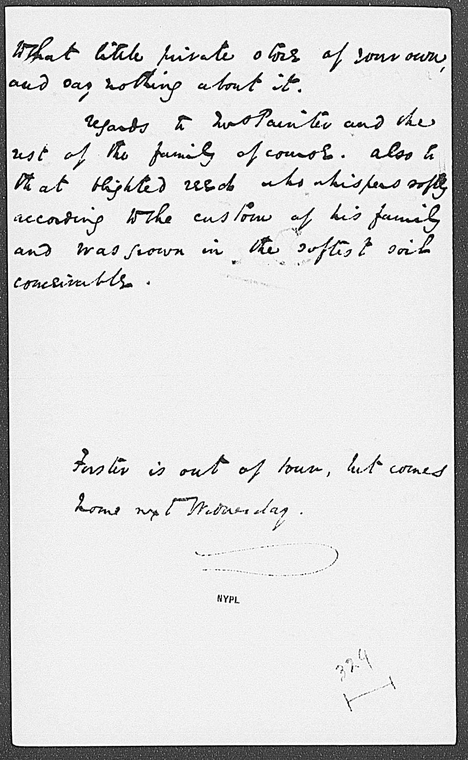 to that little private store of your own,
and say nothing about it.
regards to Mrs Painter and the
rest of the family of course. also to
that blighted reed who whispers softly
according to the custom of his family
and was grown in the softest soil
conceivable.
Forster is out of town, but comes
home next Wednesday.
NYPL
324